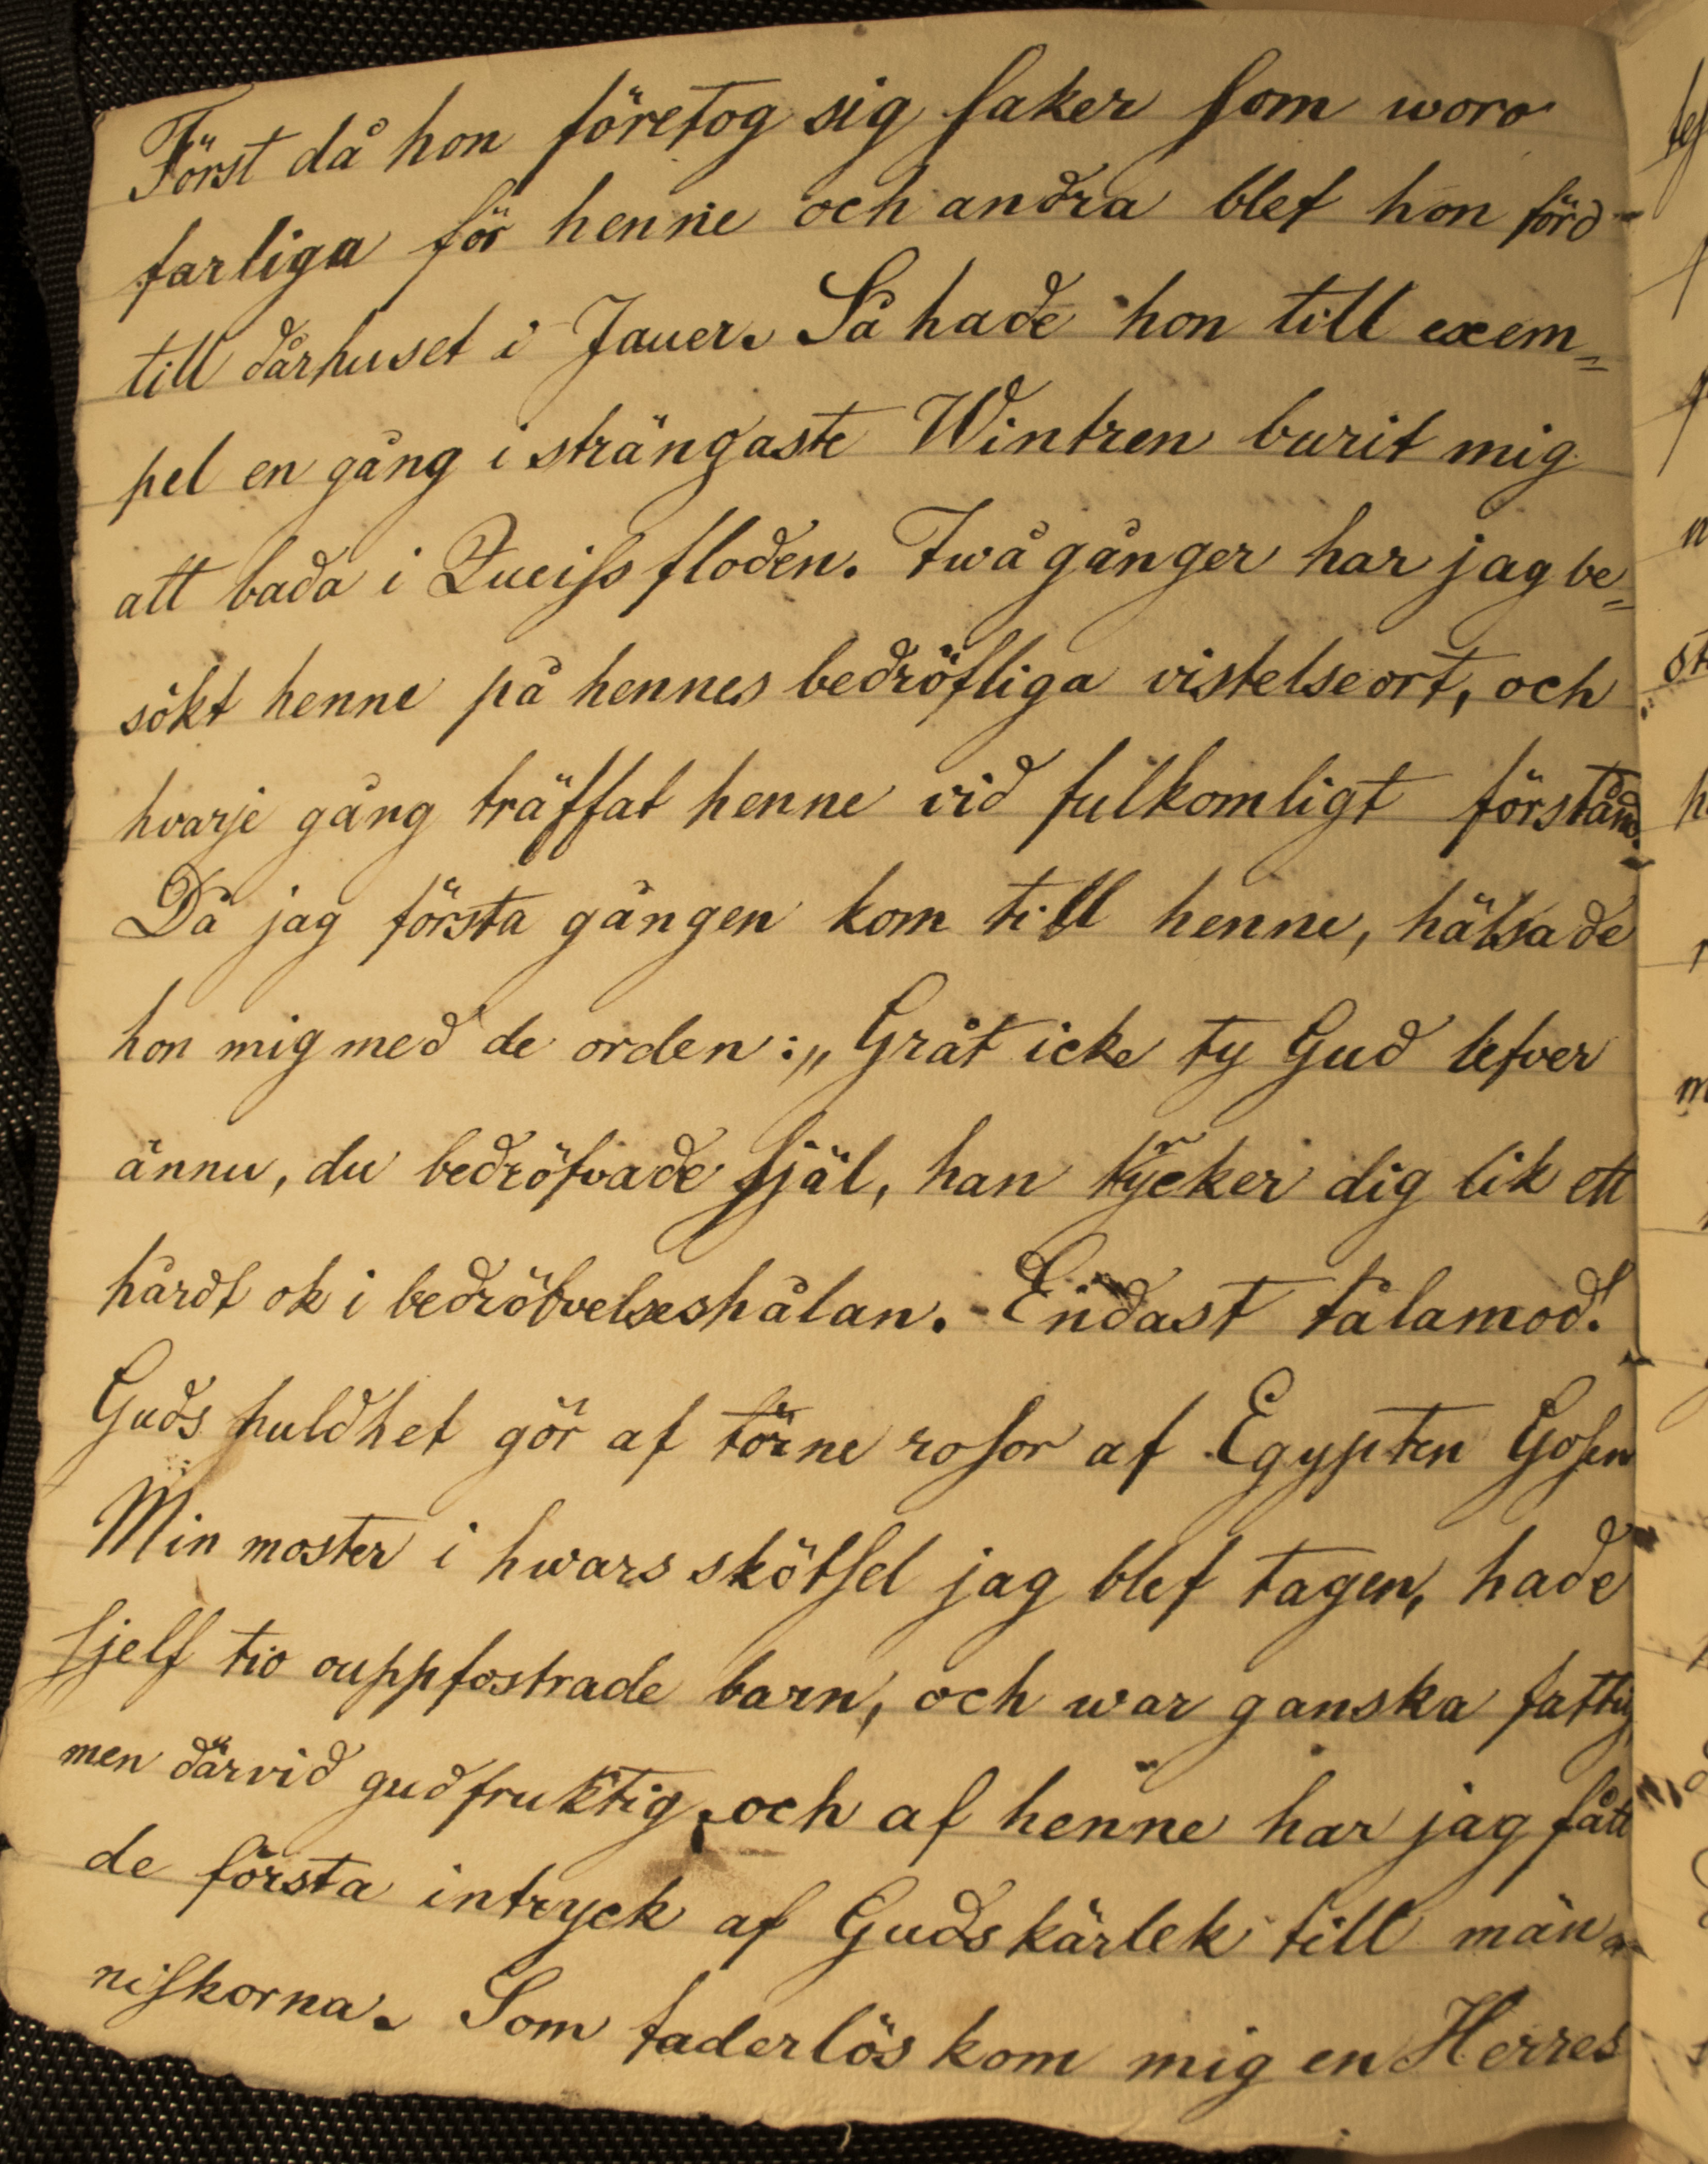 Först då hon företog sig saker som woro
farliga för henne och andra blef hon förd
till dårhuset i Jauer. Så hade hon till exem=
pel en gång i strängaste Wintren burit mig
att bada i Queiss floden. Twå gånger har jag be=
sökt henne på hennes bedröfliga vistelseort, och
hvarje gång träffat henne vid fulkomligt förstånd.
Då jag första gången kom till henne, hälsade
hon mig med de orden: „Gråt icke ty Gud lefver
ännu, du bedröfvade själ, han tycker dig lik ett
hårdt ok i bedröfvelseshålan. Endast tålamod!
Guds huldhet gör af törne rosor af Egypten Gosen
Min moster i hwars skötsel jag blef tagen, hade
sjelf tio ouppfostrade barn, och war ganska fattig,
men därvid gudfruktig, och af henne har jag fått
de första intryck af Guds kärlek till män=
niskorna. Som faderlös kom mig en Herres